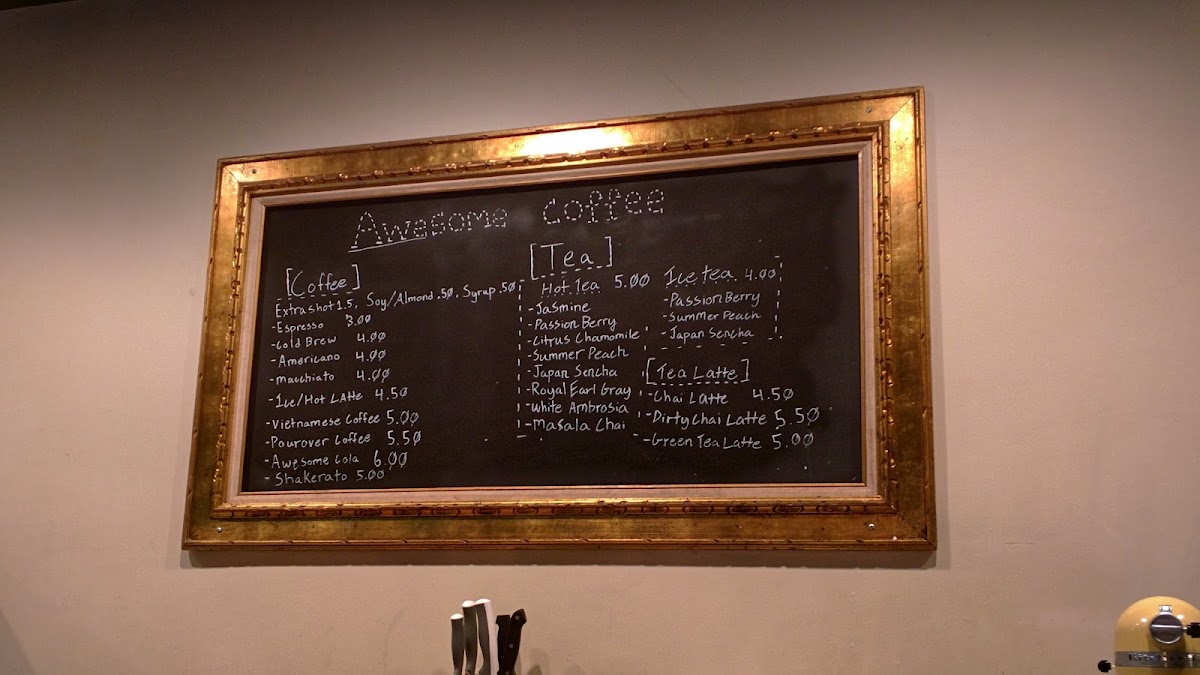 Awesome Coffee
[Coffee]
Extra shot 1.5, Soy/Almond .50, Syrup .50
-Espresso 3.00
-Cold Brew 4.00
-Americano 4.00
-Macchiato 4.00
-Ice/Hot Latte 4.50
-Vietnamese Coffee 5.00
-Pourover Coffee 5.50
-Awesome Cola 6.00
-Shakerato 5.00
[Tea]
Hot Tea 5.00
-Jasmine
-Passion Berry
-Citrus Chamomile
-Summer Peach
-Japan Sencha
-Royal Earl Gray
-White Ambrosia
-Masala Chai
Ice tea 4.00
-Passion Berry
-Summer Peach
-Japan Sencha
[Tea Latte]
-Chai Latte 4.50
-Dirty Chai Latte 5.50
-Green Tea Latte 5.00